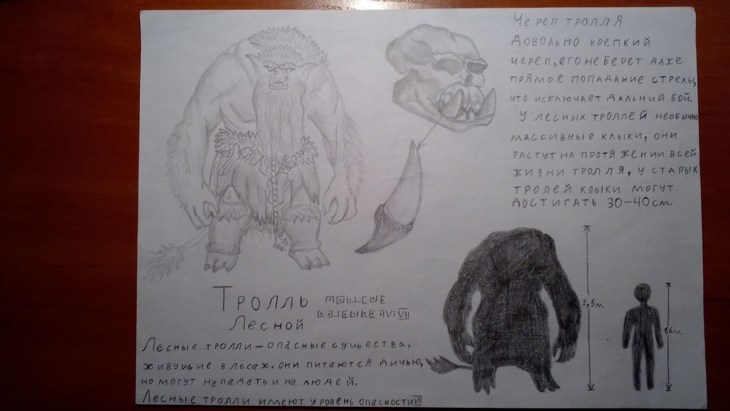 Череп тролля
довольно крепкий
череп, его не берет даже
прямое попадание стрелы,
что исключает дальний бой.
У лесных троллей необычно
массивные клыки, они
растут на протяжении всей
жизни тролля, у старых
тролей клыки могут
достигать 30-40см.
2,5м.
Тролль
Лесной
Лесные тролли – опасные существа,
живущие в лесах. они питаются дичью,
но могут нападать и на людей.
Лесные тролли имеют уровень опасности